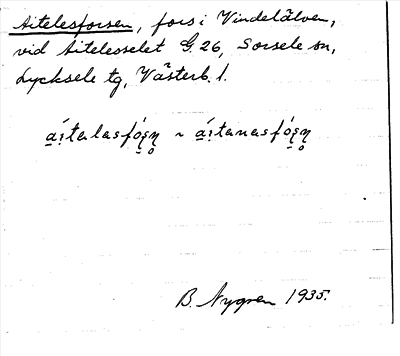 Aitelesforsen, fors i Vindelälven,
vid Aitelesselet G. 26, Sorsele sn,
Lycksele tg, Västerb. l.
a̱í̱talasfó̱ŋ̥ ~ a̱í̱tanasfó̱ŋ̥
B. Nygren 1935.